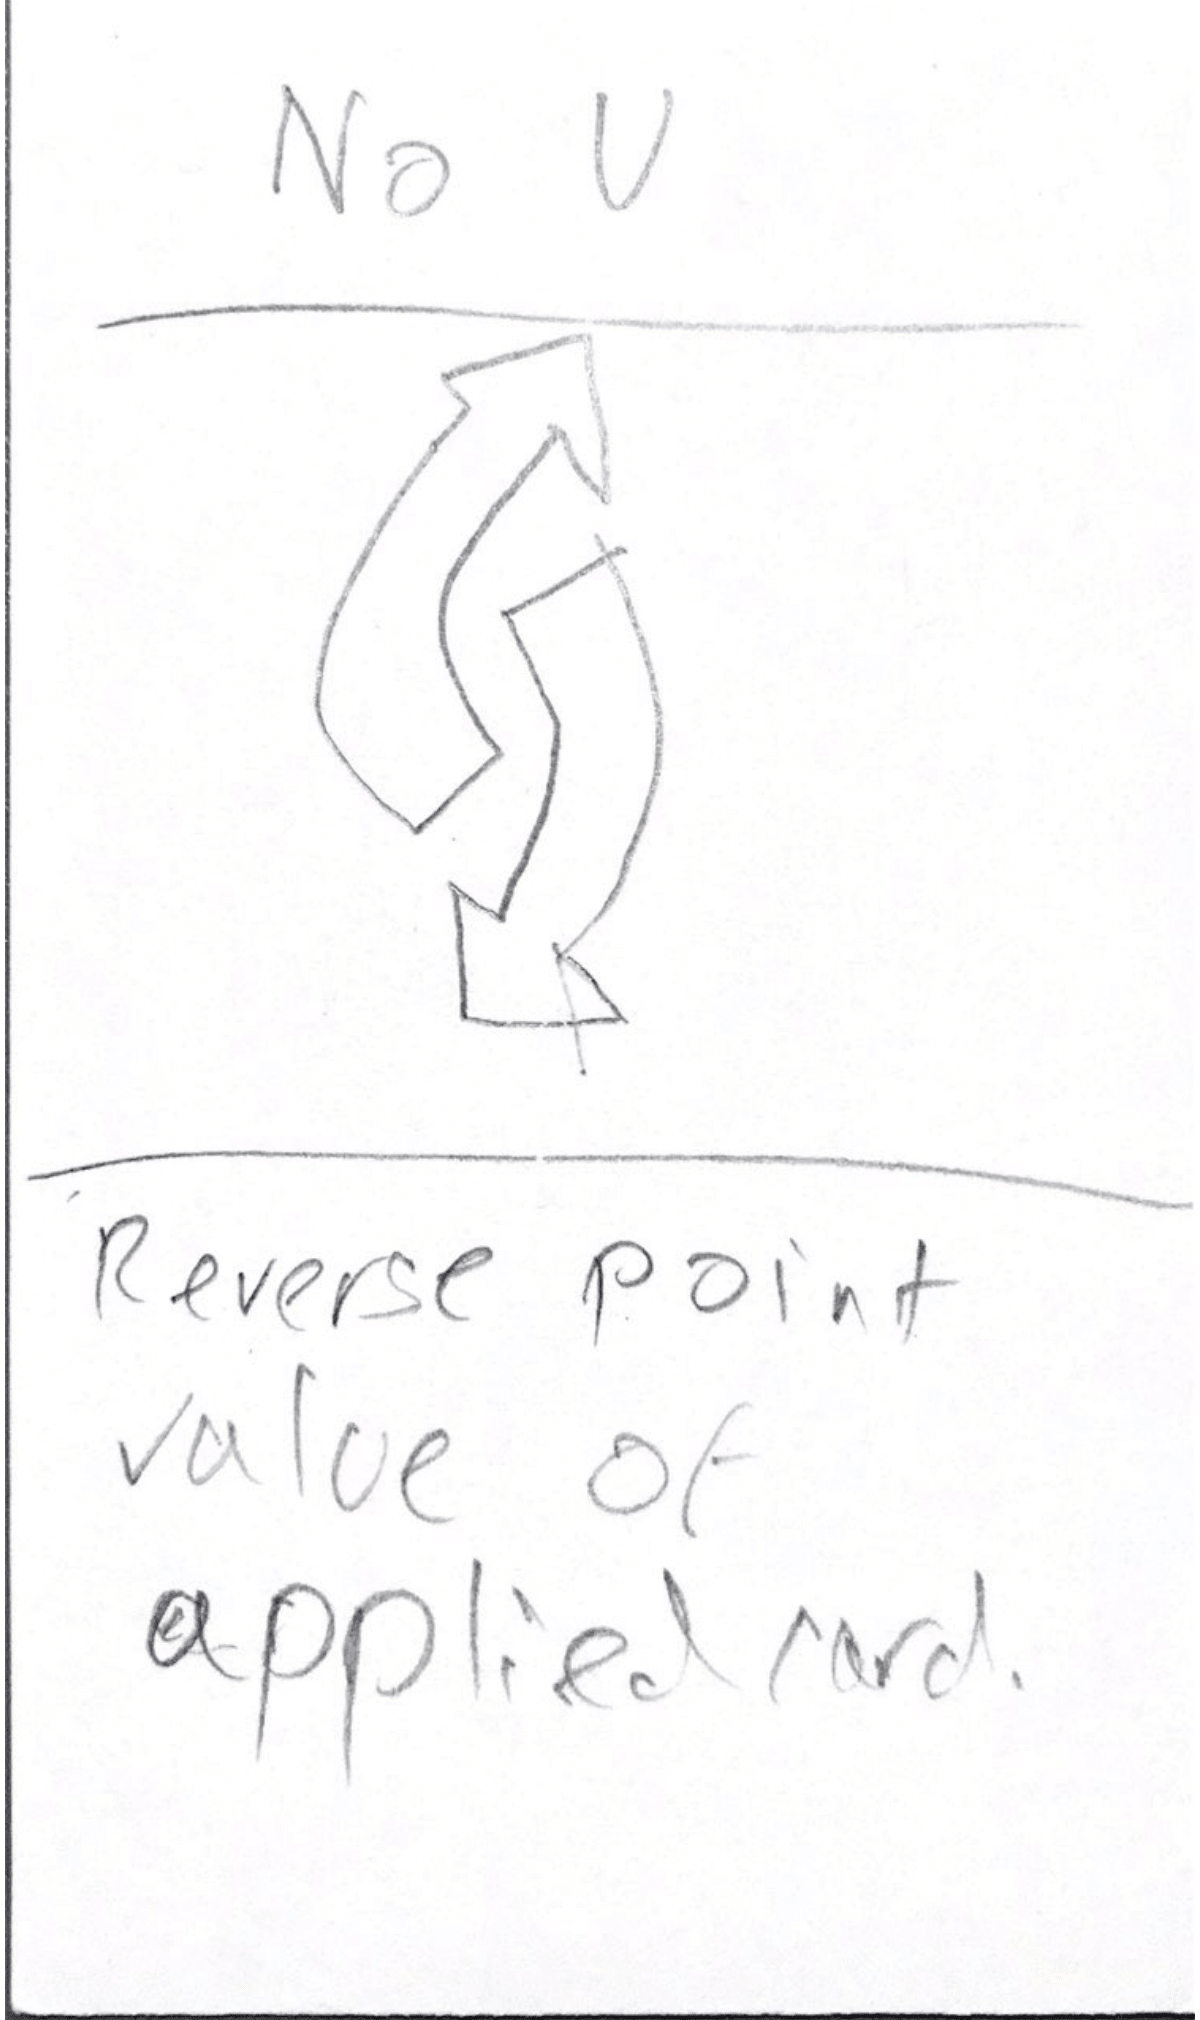 No U
Reverse point
value of
applied card.